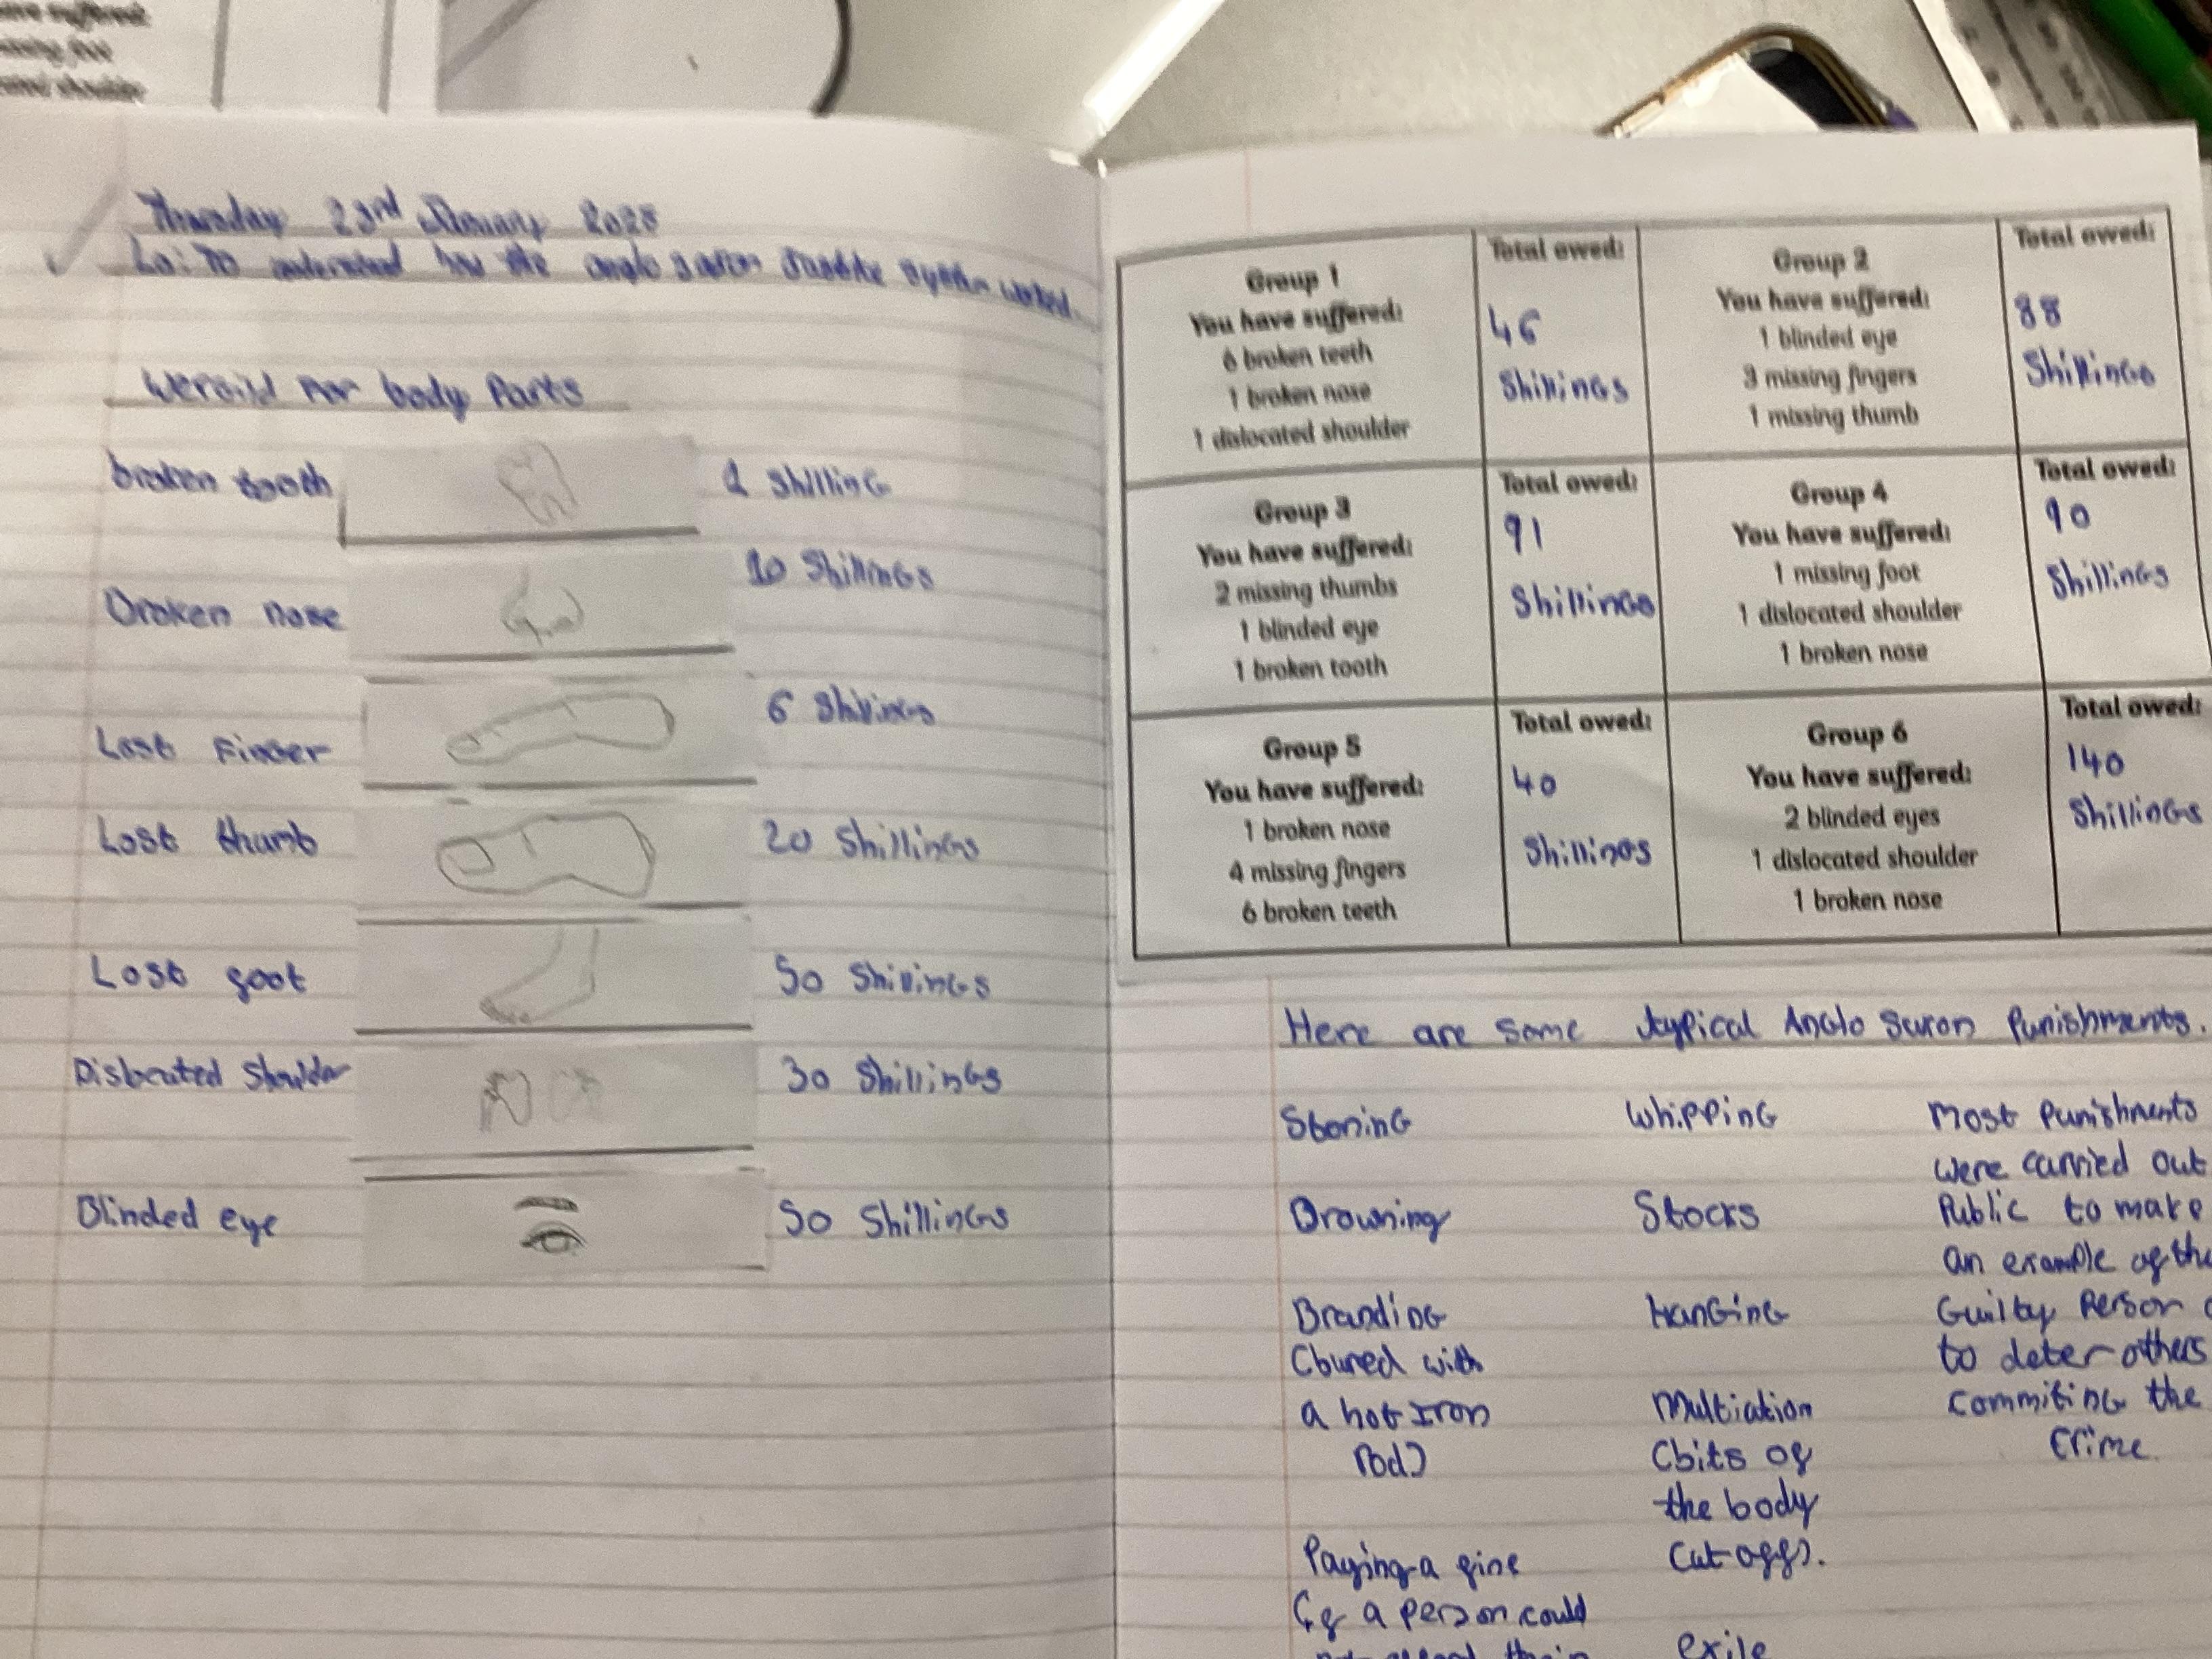 have suffered:
missing foot
cated shoulder
Thursday 23rd January 2025
Lo: To understand how the anglo saxon Justice system worked.
Wergild For body Parts
broken tooth
1 Shilling
Broken nose
10 Shillings
Lost Finger
6 Shillings
Lost thumb
20 Shillings
Lost foot
50 Shillings
Dislocated Shoulder
30 Shillings
Blinded eye
50 Shillings
Group 1
You have suffered:
6 broken teeth
1 broken nose
1 dislocated shoulder
Total owed:
46
Shillings
Group 2
You have suffered:
1 blinded eye
3 missing fingers
1 missing thumb
Total owed:
88
Shillings
Group 3
You have suffered:
2 missing thumbs
1 blinded eye
1 broken tooth
Total owed:
91
Shillings
Group 4
You have suffered:
1 missing foot
1 dislocated shoulder
1 broken nose
Total owed:
90
Shillings
Group 5
You have suffered:
1 broken nose
4 missing fingers
6 broken teeth
Total owed:
40
Shillings
Group 6
You have suffered:
2 blinded eyes
1 dislocated shoulder
1 broken nose
Total owed:
140
Shillings
Here are some typical Anglo Saxon Punishments.
Stoning
Drowning
Branding
(bured with
a hot Iron
rod)
Paying a fine
(if a person could
Whipping
Stocks
Hanging
Multiation
(bits of
the body
cut off).
exile
Most Punishments
were carried out
Public to make
an example of the
Guilty Person
to deter others
commiting the
crime.